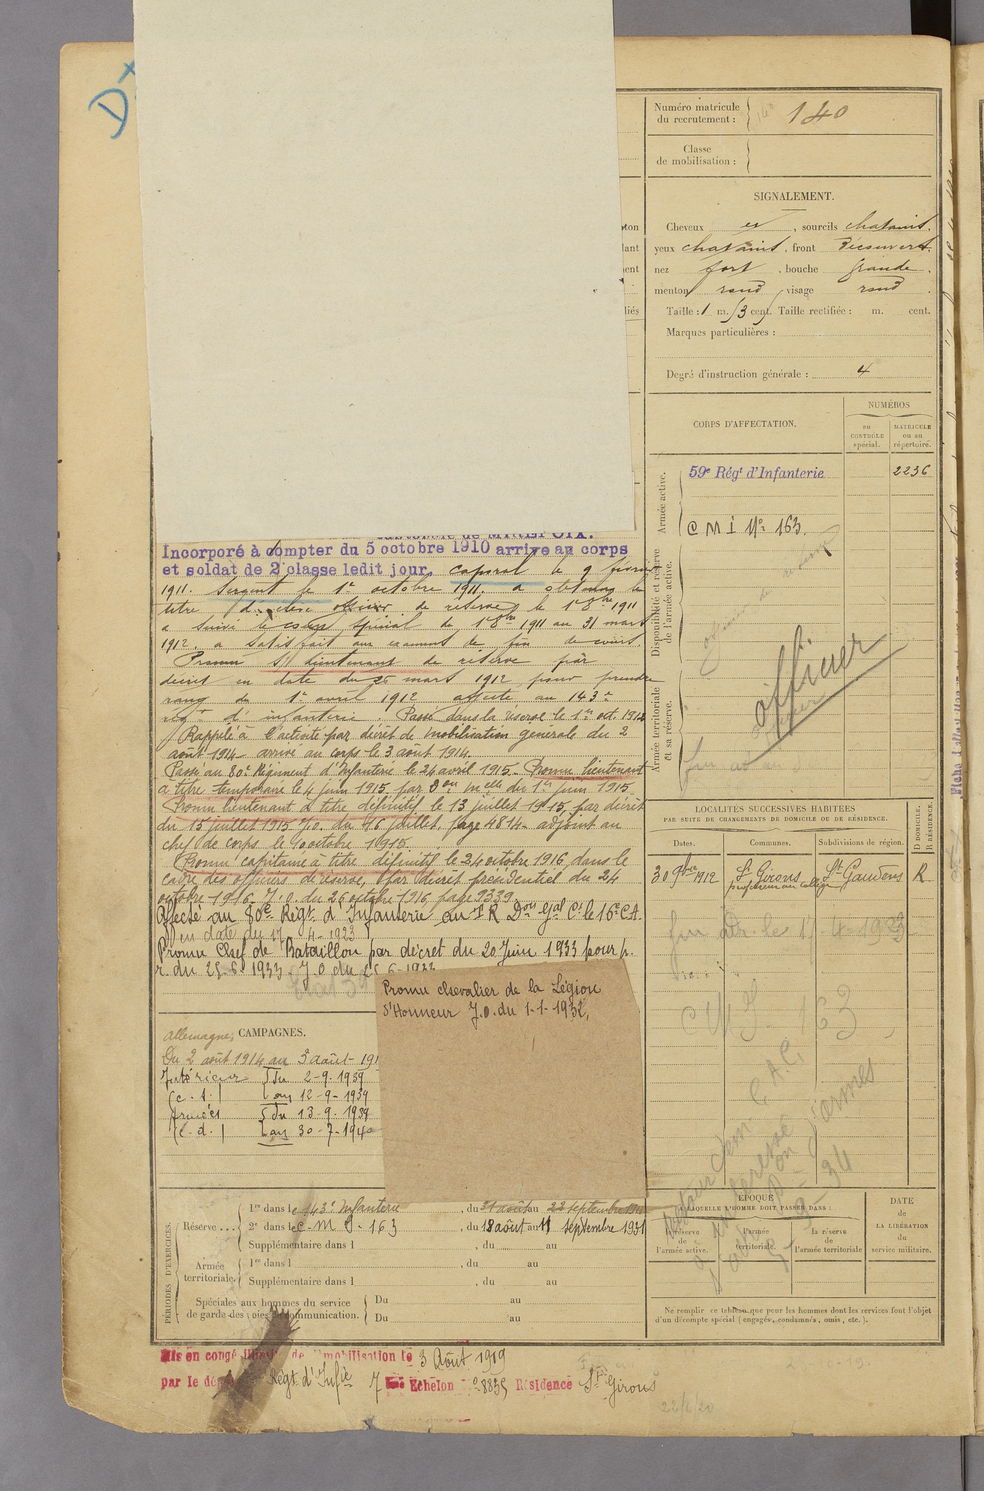 D
Numéro matricule
du recrutement :
140
Classe
de mobilisation :
SIGNALEMENT.
Cheveux et , sourcils chatains.
yeux chatains, front découvert
nez fort , bouche grande .
menton rond visage rond .
Taille : 1 m. 73 cent. Taille rectifiée : m. cent.
Marques particulières :
Degré d'instruction générale : 4
CORPS D'AFFECTATION.
NUMÉROS
au
CONTRÔLE
spécial.
MATRICULE
ou au
répertoire.
Armée active.
59e Régt d'Infanterie
2236
C M I No 163.
Disponibilité et réserve
de l'armée active.
officier
Armée territoriale
et sa réserve.
Incorporé à compter du 5 octobre 1910 arrivé au corps
et soldat de 2e classe ledit jour, caporal le 9 février
1911. Sergent le 1er octobre 1911. a obtenu le
titre d'élève officier de réserve le 1er 8bre 1911
a suivi le cours spécial du 1er 8bre 1911 au 31 mars
1912. a satisfait aux examens de fin de cours.
Promu S/ lieutenant de réserve par
décret en date du 26 mars 1912 pour prendre
rang du 1er avril 1912 affecté au 143e
régt d'infanterie. Passé dans la réserve le 1er oct. 1912
Rappelé à l'activité par décret de mobilisation générale du 2
août 1914 arrivé au corps le 3 août 1914.
Passé au 80e Régiment d'Infanterie le 24 avril 1915. Promu lieutenant
à titre temporaire le 4 juin 1915. par don melle du 1er juin 1915.
Promu lieutenant à titre définitif le 13 juillet 1915, par décret
du 15 juillet 1915 J.O. du 16 juillet, page 4814 adjoint au
chef de corps le 10 octobre 1915.
Promu capitaine à titre définitif le 24 octobre 1916 dans le
cadre des officiers de réserve, par décret présidentiel du 24
octobre 1916. J.O. du 26 octobre 1916, page 9339.
Affecté au 80e Régt d'Infanterie au F R Don Gal Ct le 16e C.A.
en date du 17-4-1923
Promu Chef de Bataillon par décret du 20 Juin 1933 pour p.
r. du 25-6-1933. J.O du 25-6-1933
Promu chevalier de la Légion
d'Honneur J.O. du 1-1-1932,
Allemagne, CAMPAGNES.
Du 2 août 1914 au 3 août 191
Intérieur du 2-9-1939
(c. s.) au 12-9-1939
Armées du 13-9-1939
(c. d.) au 30-7-1940
LOCALITÉS SUCCESSIVES HABITÉES
PAR SUITE DE CHANGEMENTS DE DOMICILE OU DE RÉSIDENCE.
D DOMICILE.
R RÉSIDENCE.
Dates.
Communes.
Subdivisions de région.
30 9bre 1912
St Girons
professeur au collège
St Gaudens
R
PÉRIODES D'EXERCICES.
Réserve ...
1re dans le 143e Infanterie , du 31 août au 22 septembre
2e dans le C. M I - 163 , du 18 août au 11 septembre 1931
Supplémentaire dans l , du au
Armée
territoriale.
1re dans l , du au
Supplémentaire dans l , du au
Spéciales aux hommes du service
de garde des voies de communication.
Du au
Du au
ÉPOQUE
À LAQUELLE L'HOMME DOIT PASSER DANS :
la réserve
de
l'armée active.
l'armée
territoriale.
la réserve
de
l'armée territoriale
DATE
de
LA LIBÉRATION
du
service militaire.
Ne remplir ce tableau que pour les hommes dont les services font l'objet
d'un décompte spécial (engagés, condamnés, omis, etc.).
Mis en congé illimité de démobilisation le 3 Août 1919
par le dépôt Régt d'Infie 7 Echelon 8835 Résidence St Girons
22/2/20